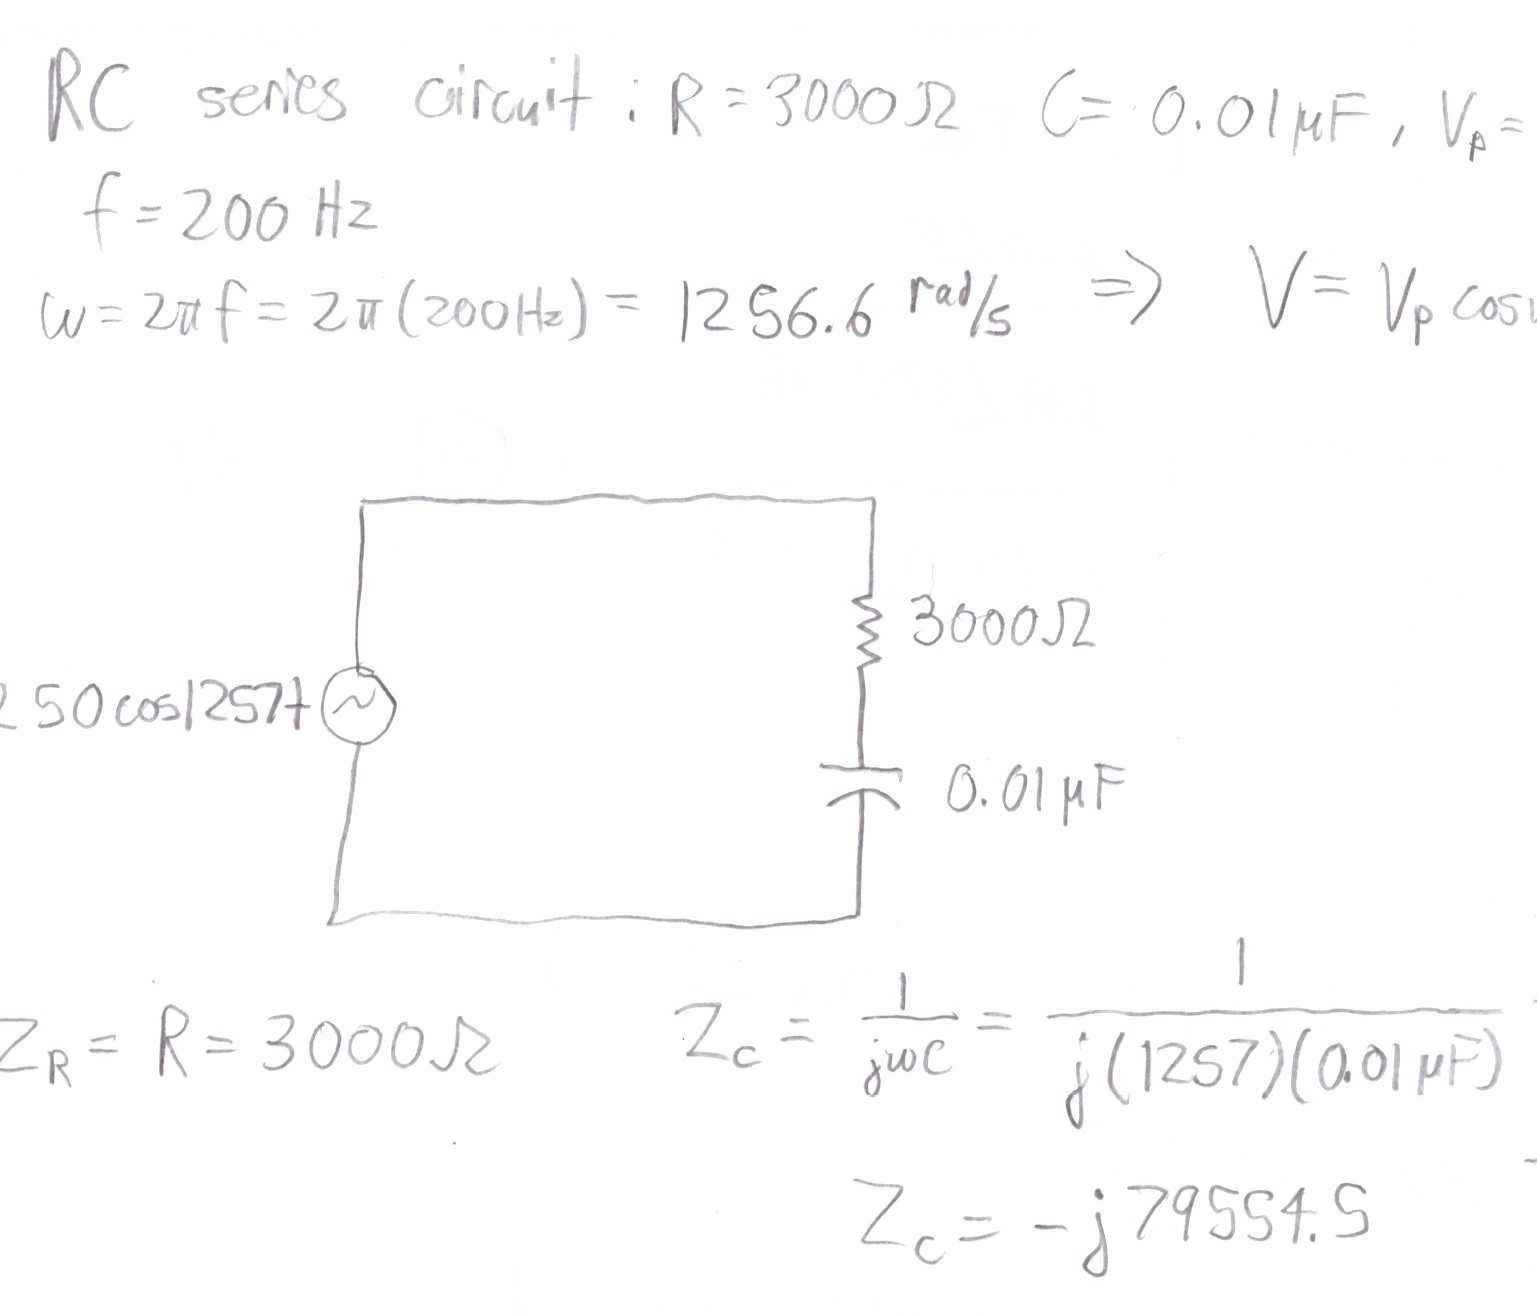 RC series circuit : R = 3000Ω C = 0.01μF, Vp =
f = 200 Hz
ω = 2πf = 2π(200Hz) = 1256.6 rad/s ⇒ V = Vp cos
3000Ω
250cos1257t
0.01μF
Z_R = R = 3000Ω Z_C = 1/jωC = 1/j(1257)(0.01μF)
Z_C = -j79554.5